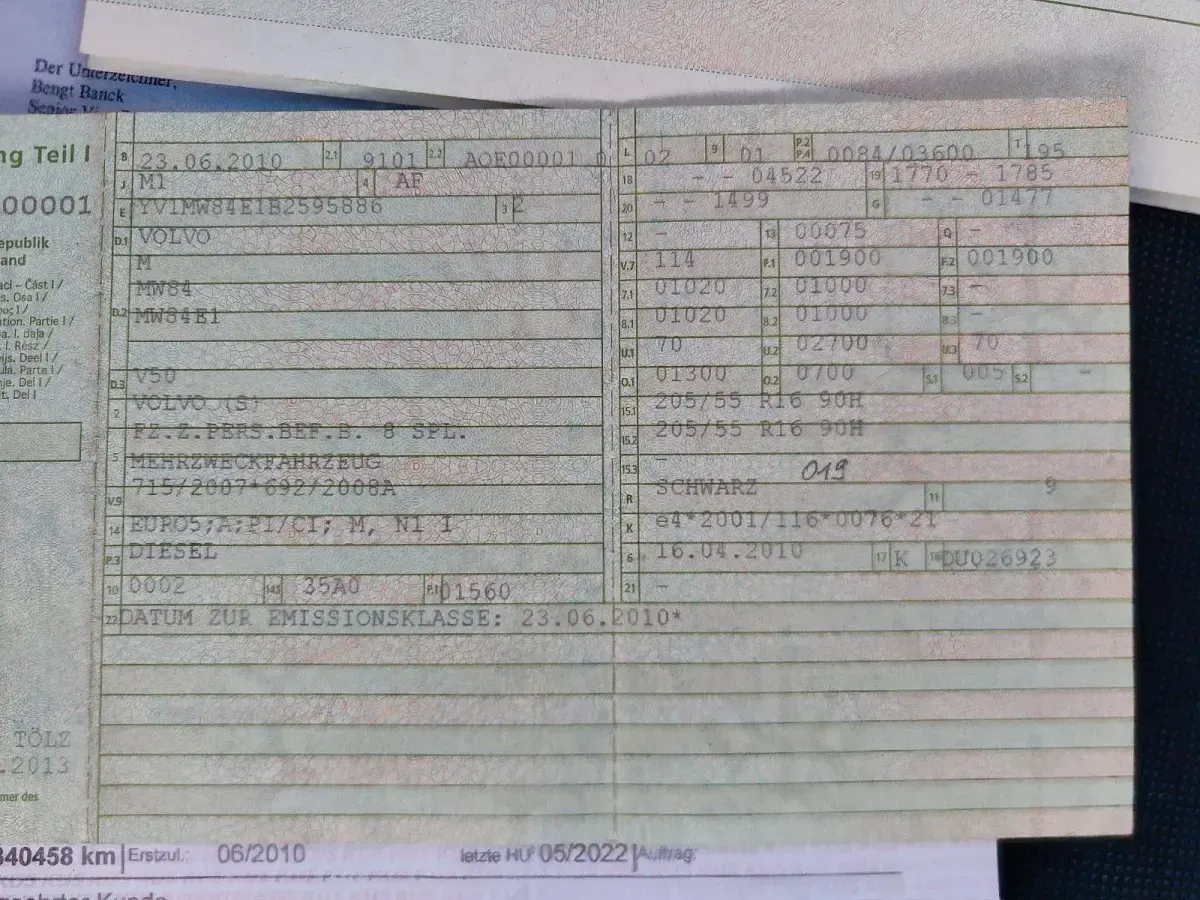 Der Unterzeichner,
Bengt Banck
Senior
ng Teil I
00001
epublik
and
aci - Část I /
s. Osa I /
oc I /
tion. Partie I /
a. I. daļa /
. I. Rész /
ijs. Deel I /
ula. Parte I /
nje. Del I /
t. Del I
TÖLZ
.2013
mer des
B 23.06.2010 2.1 9101 2.2 AOE00001 0
J M1 4 AF
E YV1MW84E1B2595886 3 2
D.1 VOLVO
M
D.2 MW84
MW84E1
D.3 V50
2 VOLVO (S)
5 FZ.Z.PERS.BEF.B. 8 SPL.
MEHRZWECKFAHRZEUG
V.9 715/2007*692/2008A
14 EURO5;A;PI/CI; M, N1 I
P.3 DIESEL
10 0002 14.1 35A0 P.1 01560
22 DATUM ZUR EMISSIONSKLASSE: 23.06.2010*
L 02 9 01 P.2 P.4 0084/03600 T 195
18 - - 04522 19 1770 - 1785
20 - - 1499 G - - 01477
12 - 13 00075 Q -
V.7 114 F.1 001900 F.2 001900
7.1 01020 7.2 01000 7.3 -
8.1 01020 8.2 01000 8.3 -
U.1 70 U.2 02700 U.3 70
O.1 01300 O.2 0700 S.1 005 S.2 -
15.1 205/55 R16 90H
15.2 205/55 R16 90H
15.3 -
019
R SCHWARZ 11 9
K e4*2001/116*0076*21
6 16.04.2010 17 K 16 DU026923
21 -
340458 km Erstzul.: 06/2010 letzte HU 05/2022 Auftrag
Kunde